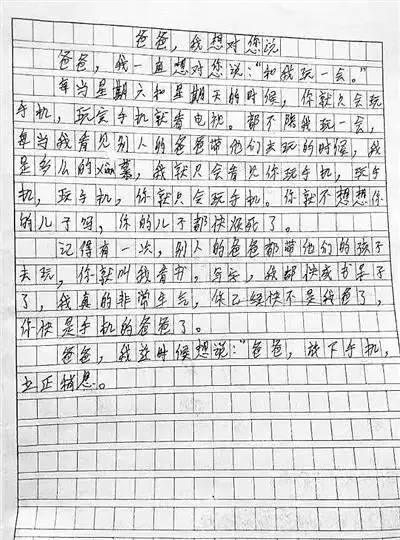 爸爸，我想对您说
爸爸，我一直想对您说：“和我玩一会。”
每当星期六和星期天的时候，你就只会玩
手机，玩完手机就看电视。都不陪我玩一会，
每当我看见别人的爸爸带他们去玩的时候，我
是多么的xian慕，我就只会看见你玩手机，玩手
机，玩手机，你就只会玩手机。你就不想想你
的儿子吗，你的儿子都快死了。
记得有一次，别人的爸爸都带他们的孩子
去玩，你就叫我看书，写字，我都快成书呆子
了，我真的非常生气，你已经快不是我爸了，
你快是手机的爸爸了。
爸爸，我这时候想说：“爸爸，放下手机，
立正稍息。